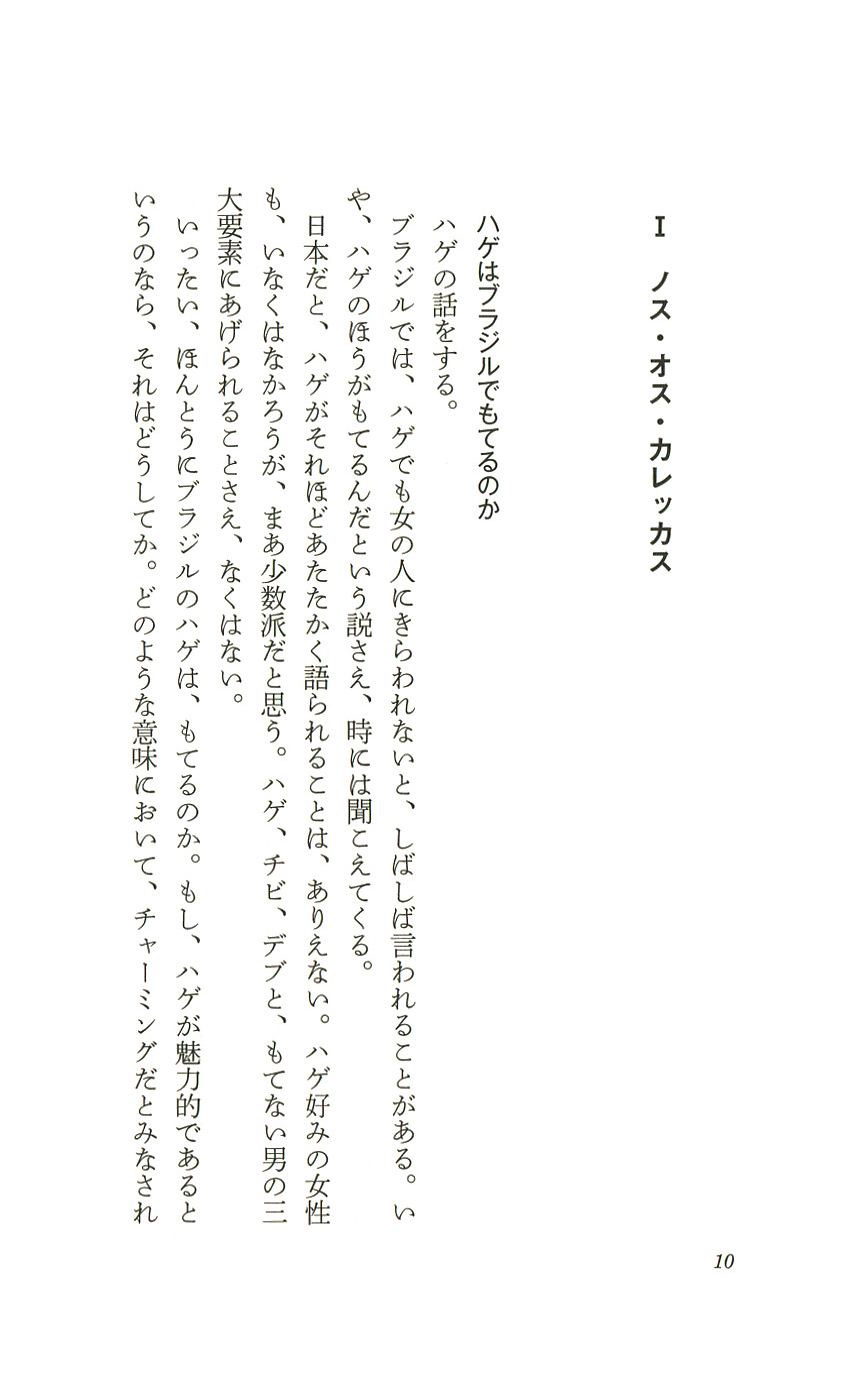 I ノス・オス・カレッカス
ハゲはブラジルでもてるのか
ハゲの話をする。
ブラジルでは、ハゲでも女の人にきらわれないと、しばしば言われることがある。い
や、ハゲのほうがもてるんだという説さえ、時には聞こえてくる。
日本だと、ハゲがそれほどあたたかく語られることは、ありえない。ハゲ好みの女性
も、いなくはなかろうが、まあ少数派だと思う。ハゲ、チビ、デブと、もてない男の三
大要素にあげられることさえ、なくはない。
いったい、ほんとうにブラジルのハゲは、もてるのか。もし、ハゲが魅力的であると
いうのなら、それはどうしてか。どのような意味において、チャーミングだとみなされ
10